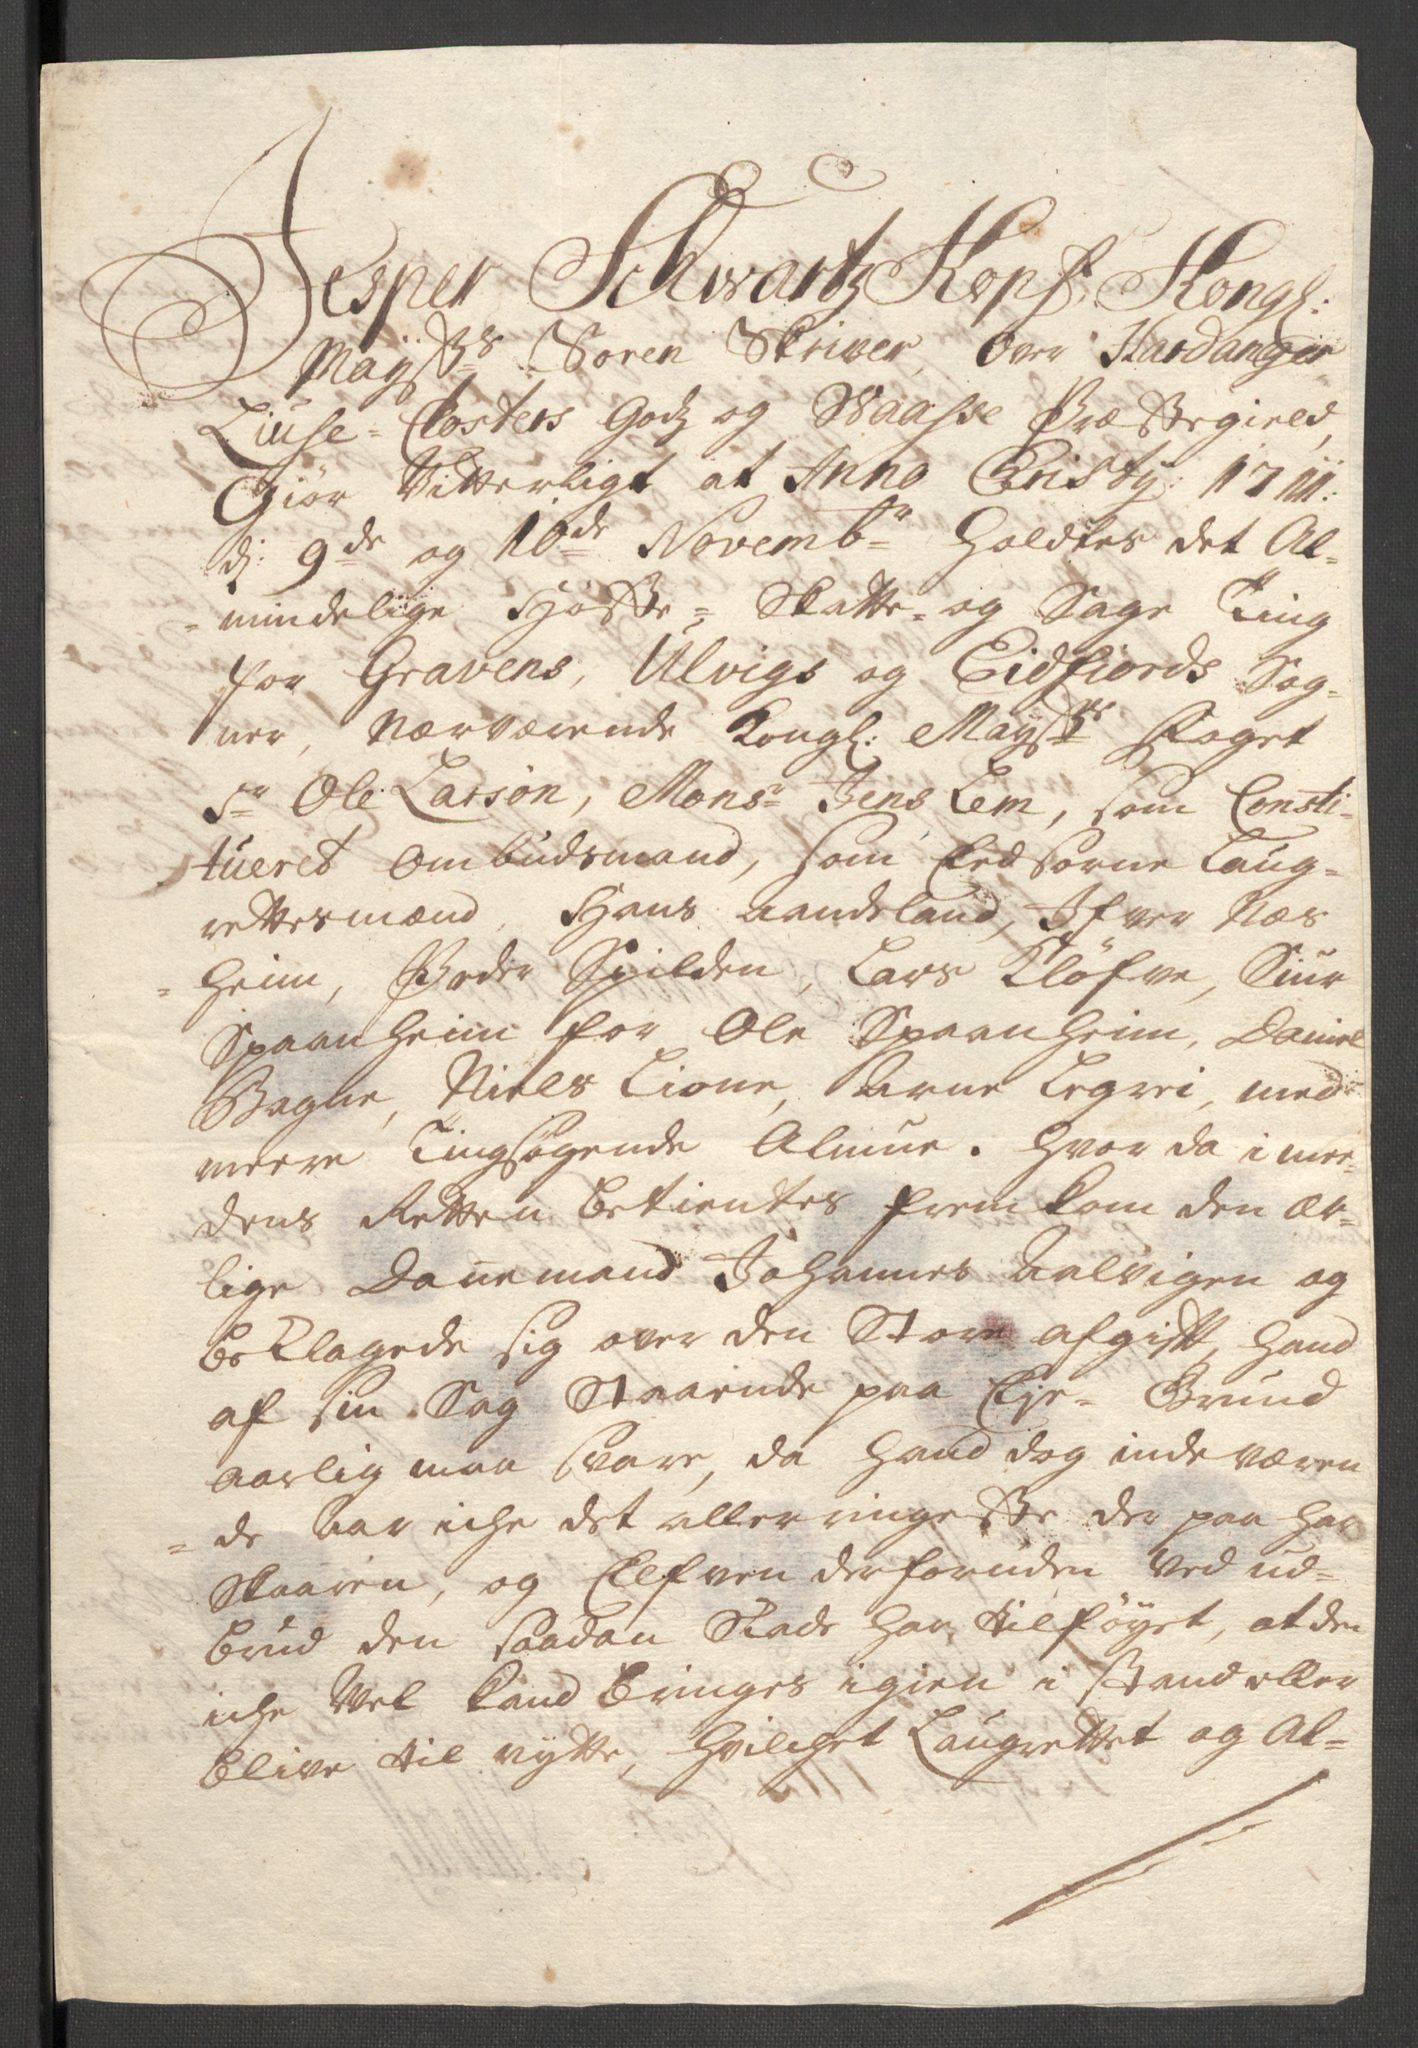 Jesper Schwartz Kopf, Kongl:
Mayst:s Soren Skriver over Hardanger
Liuse-Closters Godz og Waasse Præstegield,
Giör Vitterligt at Anno Cristy: 1711:
d: 9de og 10de Novembr Holdtes det Al-
-mindelige Höste- Skatte- og Sage Ting
for Gravens, Ulvigs og Eidfiords Sog-
ner, nærværende Kongl: Mayst:s Foget
Sr Ole Larsön, Monsr Jens Lem, som Consti-
tueret Ombudsmand, som Eedsorne Laug-
rettesmænd, Hans Aandeland, Ifver Næs
-heim, Peder Spilden, Lars Klöfve, Siur
Spaanheim for Ole Spaanheim, Daniel
Bagne, Niels Lione, Arne Legrei, med
meere Tingsögende Almue. Hvor da imee-
dens Retten betientes fremkom den ær-
lige Dannemand Johannes Aalvigen og
beklagede sig over den Store afgift, hand
af sin Sag Staaende paa Eje-Grund
aarlig maa svare, da hand dog indeværen
-de Aar iche det allerringeste der paa har
Skaaren, og Elfven derforuden ved ud-
brud den saadan Skade har tilföyet, at den
iche vel kand bringes igien i stand eller
blive til nytte, hvilchet Laugrettet og Al-